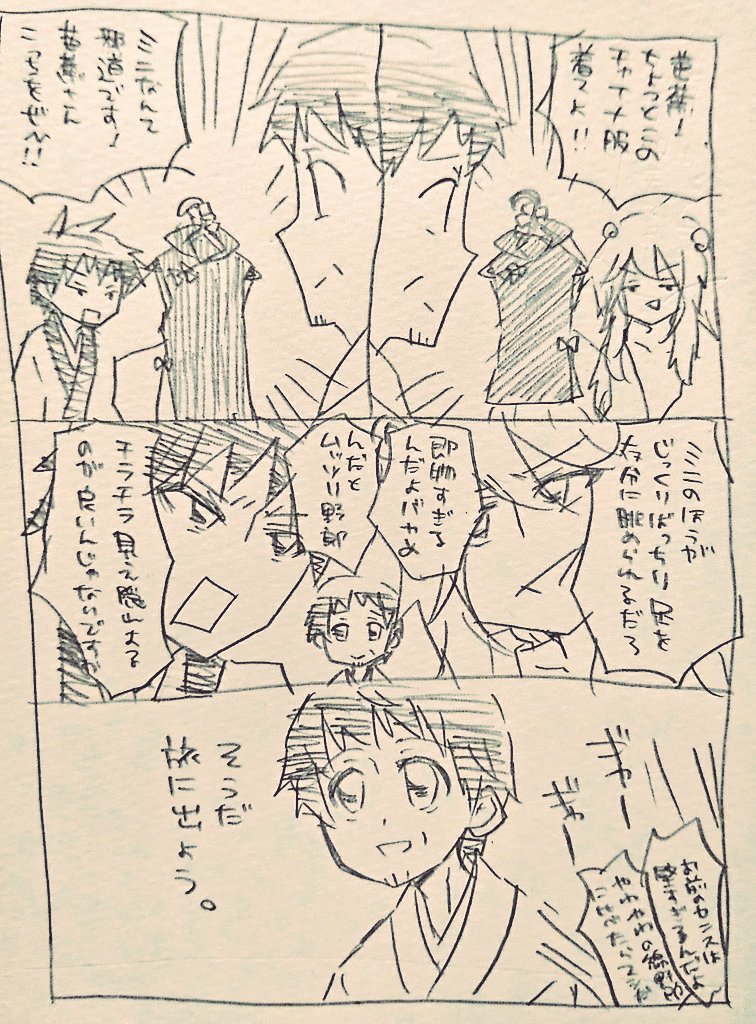 芭蕉！
ちょっとこの
チャイナ服
着てよ！！
ミニなんて
邪道です！
芭蕉さん
こっちをぜひ！！
ミニのほうが
じっくりばっちり足を
存分に眺められるだろ
即物すぎる
んだよバカめ
んだと
ムッツリ野郎
チラチラ見え隠れする
のが良いんじゃないですか
ぎゃー
ぎゃー
お前のセンスは
そうだ
旅に出よう。